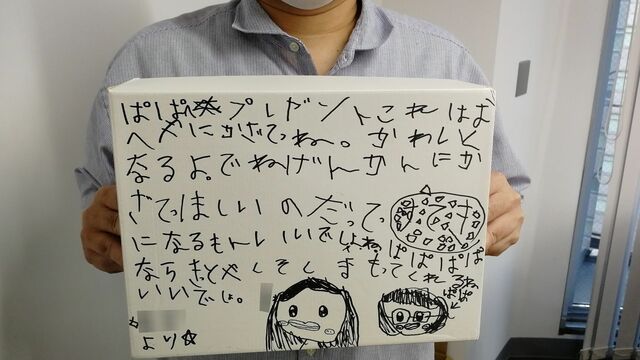 ぱぱへプレゼントこれはね
へやにかざってね。かわいく
なるよ。でねげんかんにか
ざってほしいのだって
になるもんいいでしょね
ぱぱぱぱ
ならきっとやくそくまもってくれるね
いいでしょ。
ぱぱ
より☆